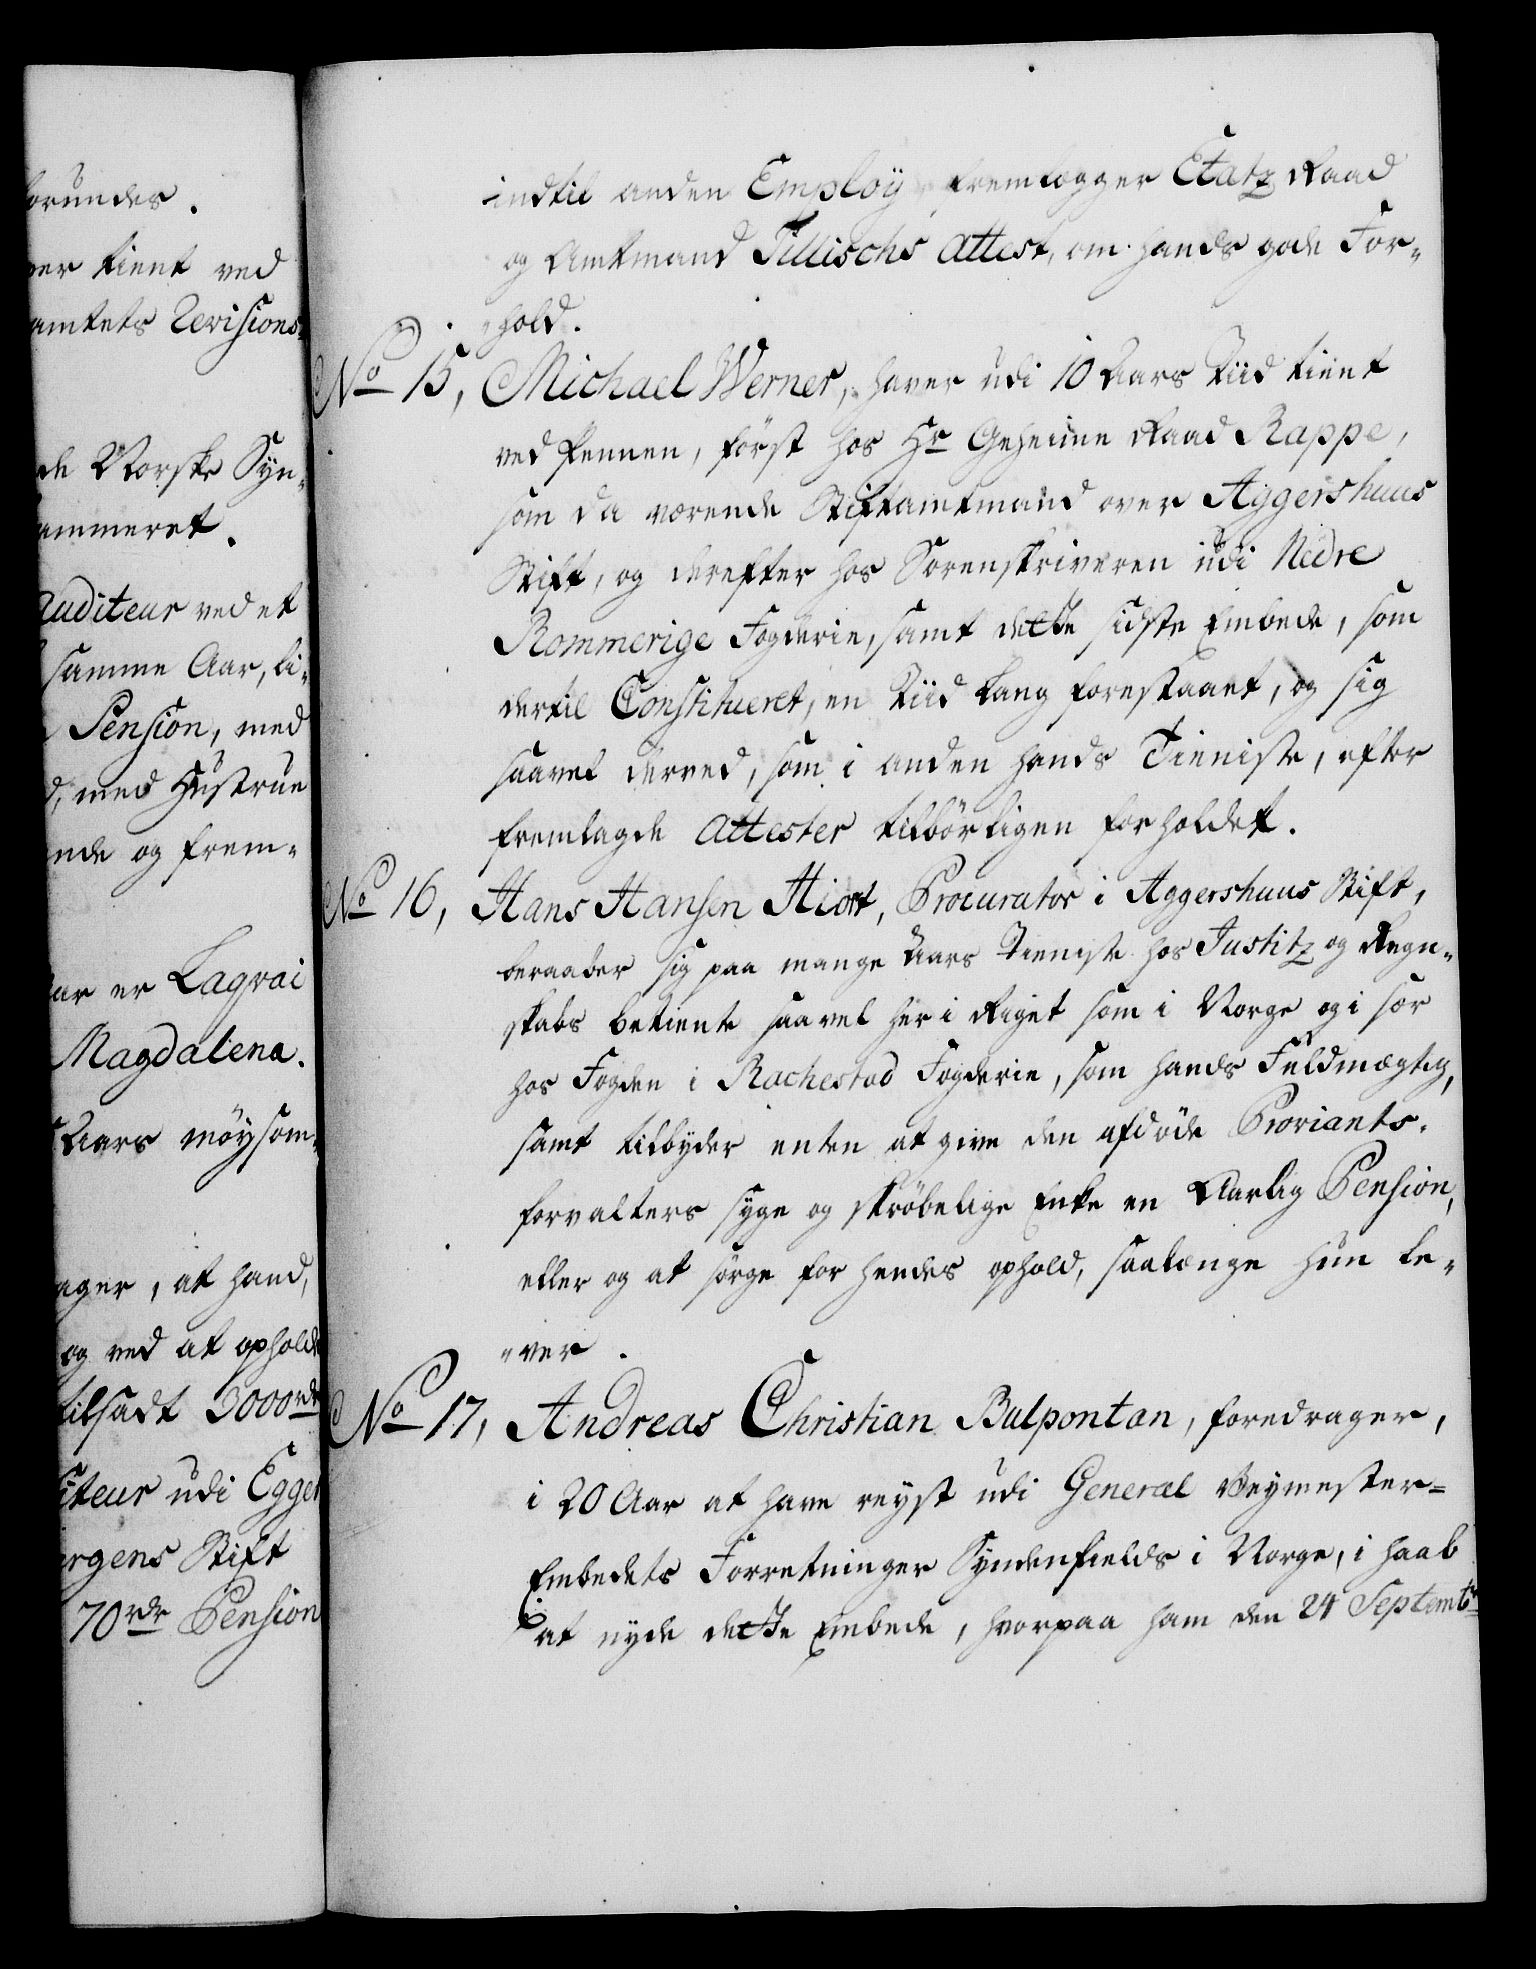 orundes.
ver tient ved
amtets Revisions-
de Norske Syn-
ammeret.
Auditeur ved et
samme Aar, li-
Pension, med
d, med Hustrue
ende og frem-
aar er Laqvai
Magdalena.
Aars möysom-
ager, at hand,
og ved at ophold
tilsadt 3000 rdr
iteur udi Egger
ergens Stift
70 rdr Pension
indtil anden Employ, fremlegger Etatz Raad
og Amtmand Tillischs Attest, om hands gode For-
hold.
No 15, Michael Werner, haver udi 10 Aars Tiid tient
ved Pennen, först hos Hr Geheime Raad Rappe,
som da værende Stiftamtmand over Aggershuus
Stift, og derefter hos Sorenskriveren udi Nedre
Rommerige Fogderie, samt dette sidste Embede, som
dertil Constitueret, en Tiid lang forestaaet, og sig
saavel derved, som i anden hands Tieniste, efter
fremlagde Attester tilbörligen forholdet.
No 16, Hans Hansen Hiort, Procurator i Aggershuus Stift,
beraaber sig paa mange Aars Tieniste hos Justitz og Regn-
skabs betiente saavel her i Riget som i Norge og i sær
hos Fogden i Rachestad Fogderie, som hands Fuldmægtig,
samt tilbyder enten at give den afdöde Proviants-
forvalters syge og skröbelige Enke en Aarlig Pension,
eller og at sörge for hendes ophold, saalænge hun le-
ver.
No 17, Andreas Christian Bulpontan, foredrager,
i 20 Aar at have reyst udi General Veymester=
Embedets Forretninger Syndenfields i Norge, i haab
at nyde dette Embede, hvorpaa ham den 24 Septembr